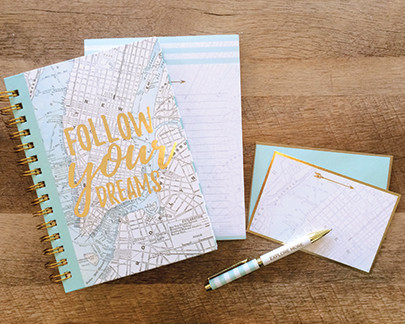 FOLLOW
your
DREAMS
EXPLORE MORE